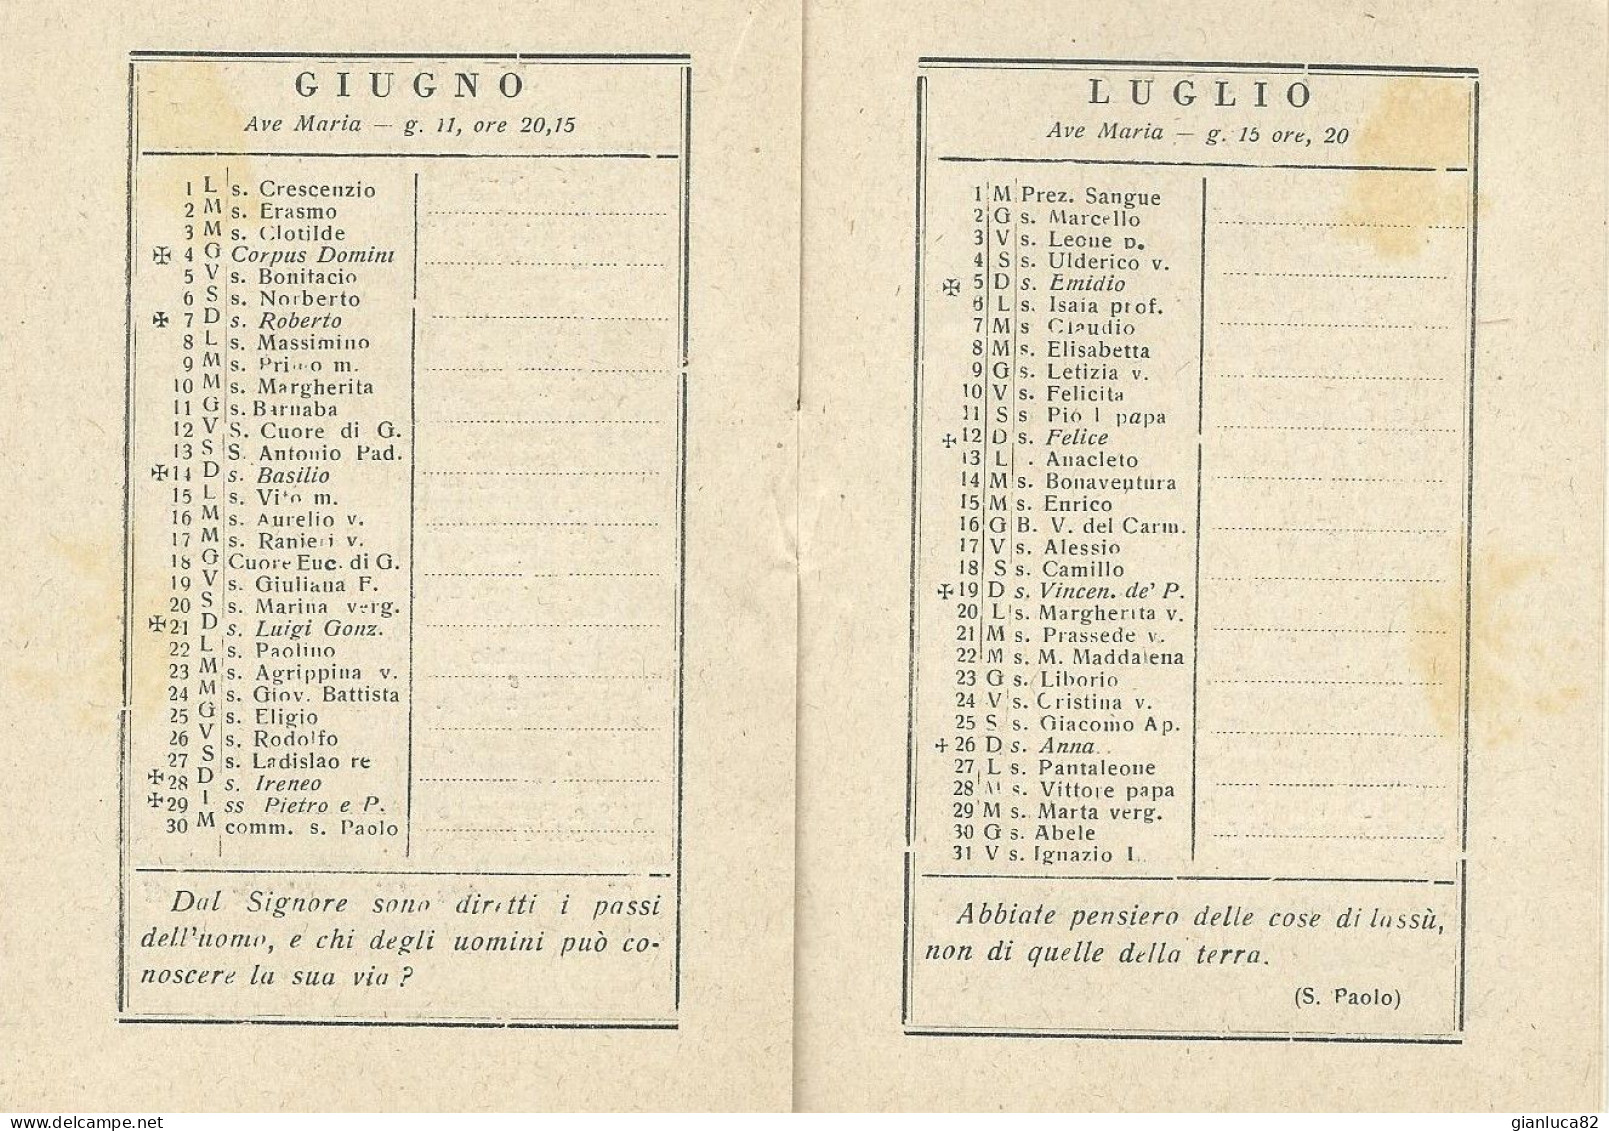 GIUGNO
Ave Maria — g. 11, ore 20,15
1 L s. Crescenzio
2 M s. Erasmo
3 M s. Clotilde
✠ 4 G Corpus Domini
5 V s. Bonifacio
6 S s. Norberto
✠ 7 D s. Roberto
8 L s. Massimino
9 M s. Primo m.
10 M s. Margherita
11 G s. Barnaba
12 V S. Cuore di G.
13 S S. Antonio Pad.
✠ 14 D s. Basilio
15 L s. Vito m.
16 M s. Aurelio v.
17 M s. Ranieri v.
18 G Cuore Euc. di G.
19 V s. Giuliana F.
20 S s. Marina verg.
✠ 21 D s. Luigi Gonz.
22 L s. Paolino
23 M s. Agrippina v.
24 M s. Giov. Battista
25 G s. Eligio
26 V s. Rodolfo
27 S s. Ladislao re
✠ 28 D s. Ireneo
✠ 29 L ss Pietro e P.
30 M comm. s. Paolo
Dal Signore sono diretti i passi
dell'uomo, e chi degli uomini può co-
noscere la sua via ?
LUGLIO
Ave Maria — g. 15 ore, 20
1 M Prez. Sangue
2 G s. Marcello
3 V s. Leone p.
4 S s. Ulderico v.
✠ 5 D s. Emidio
6 L s. Isaia prof.
7 M s Claudio
8 M s. Elisabetta
9 G s. Letizia v.
10 V s. Felicita
11 S s Pio I papa
✠ 12 D s. Felice
13 L . Anacleto
14 M s. Bonaventura
15 M s. Enrico
16 G B. V. del Carm.
17 V s. Alessio
18 S s. Camillo
✠ 19 D s. Vincen. de' P.
20 L s. Margherita v.
21 M s. Prassede v.
22 M s. M. Maddalena
23 G s. Liborio
24 V s. Cristina v.
25 S s. Giacomo Ap.
✠ 26 D s. Anna.
27 L s. Pantaleone
28 M s. Vittore papa
29 M s. Marta verg.
30 G s. Abele
31 V s. Ignazio L.
Abbiate pensiero delle cose di lassù,
non di quelle della terra.
(S. Paolo)
gianluca82